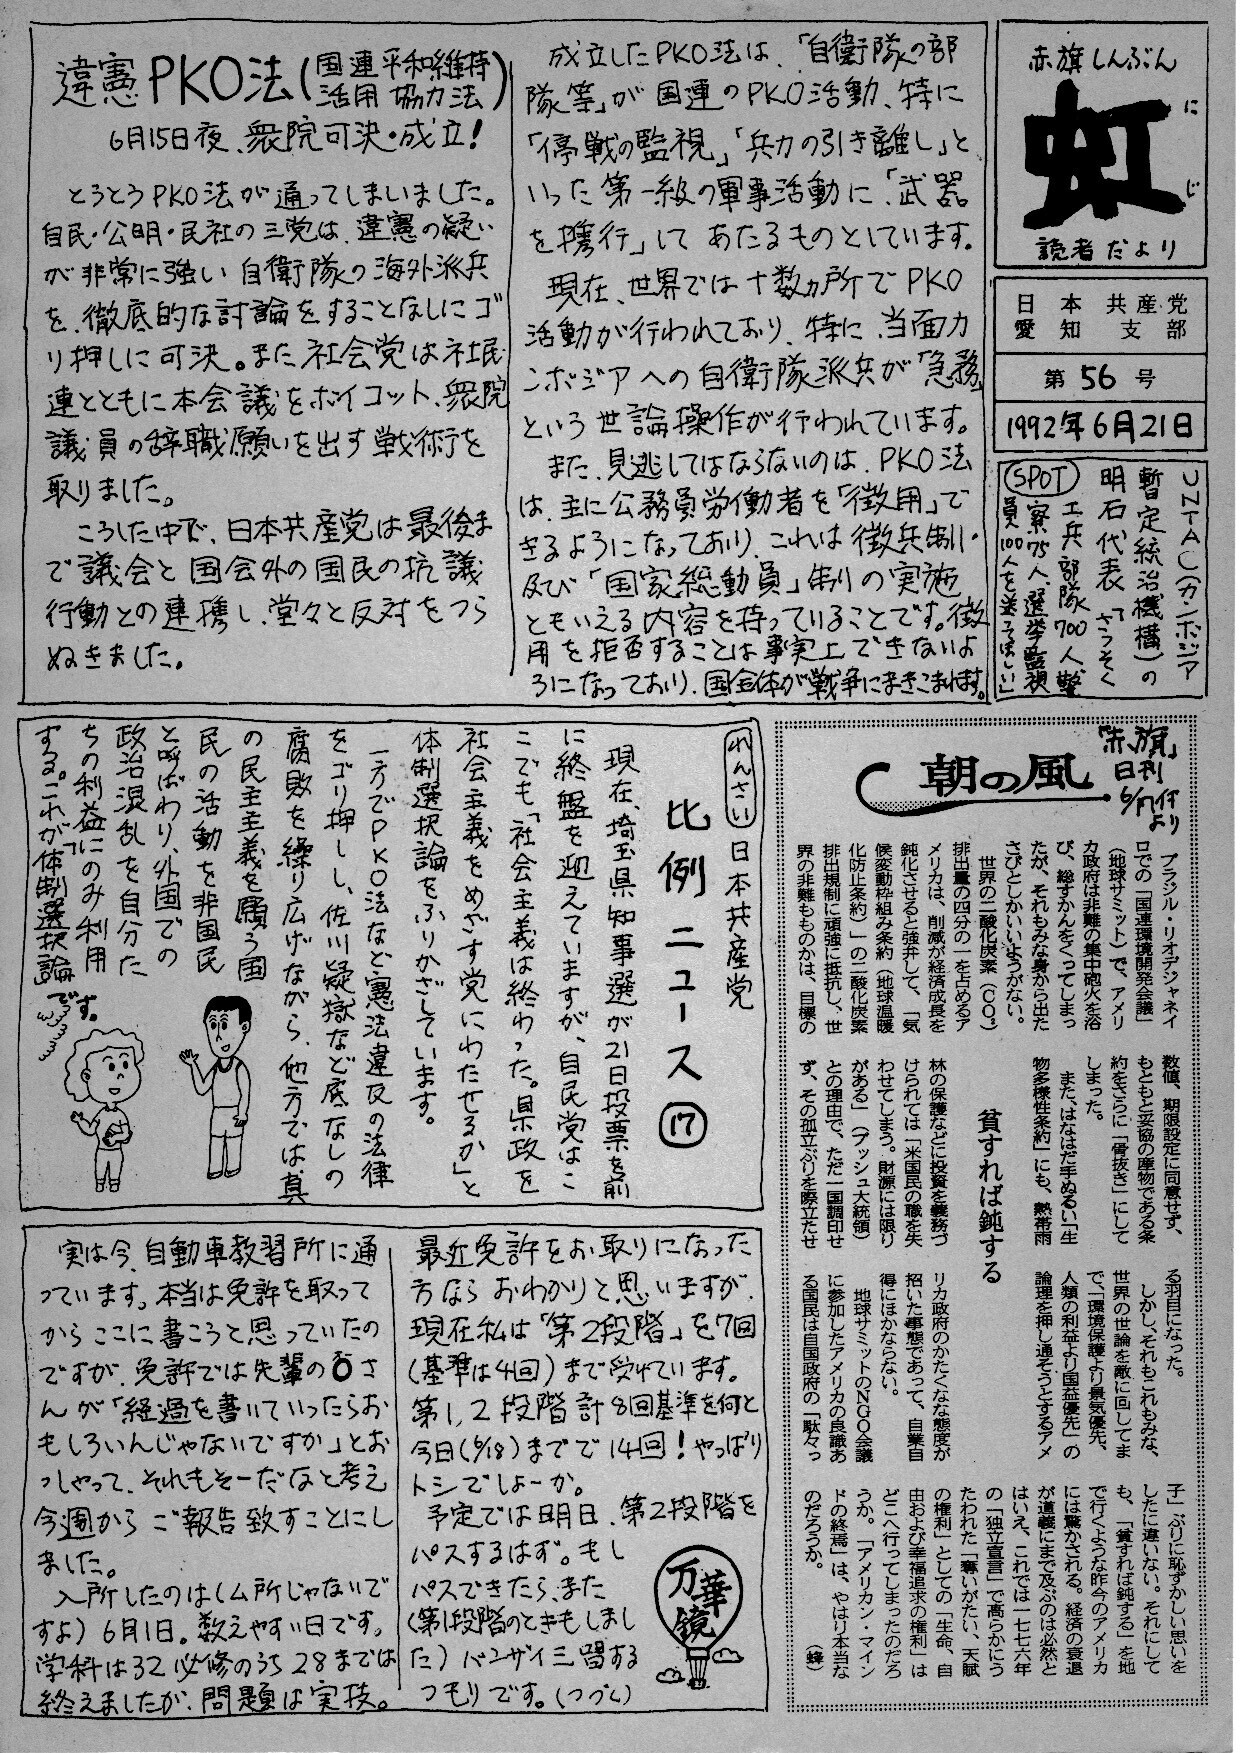 赤旗しんぶん
虹
にじ
読者だより
日本共産党
愛知支部
第56号
1992年6月21日
違憲PKO法(国連平和維持活用協力法)
6月15日夜、衆院可決・成立!
とうとうPKO法が通ってしまいました。
自民・公明・民社の三党は、違憲の疑い
が非常に強い自衛隊の海外派兵
を、徹底的な討論をすることなしにゴ
リ押しに可決。また社会党は社民
連とともに本会議をボイコット、衆院
議員の辞職願いを出す戦術を
取りました。
こうした中で、日本共産党は最後ま
で議会と国会外の国民の抗議
行動との連携し、堂々と反対をつら
ぬきました。
成立したPKO法は、「自衛隊の部
隊等」が国連のPKO活動、特に
「停戦の監視」「兵力の引き離し」と
いった第一級の軍事活動に「武器
を携行」してあたるものとしています。
現在、世界では十数ヵ所でPKO
活動が行われており、特に、当面カ
ンボジアへの自衛隊派兵が「急務」
という世論操作が行われています。
また、見逃してはならないのは、PKO法
は、主に公務員労働者を「徴用」で
きるようになっており、これは徴兵制・
及び「国家総動員」制の実施
ともいえる内容を持っていることです。徴
用を拒否することは事実上できないよ
うになっており、国全体が戦争にまきこまれます。
SPOT
UNTAC(カンボジア
暫定統治機構)の
明石代表「さっそく
工兵部隊700人、警
察75人、選挙監視
員100人を送ってほしい」
れんさい
日本共産党
比例ニュース⑰
現在、埼玉県知事選が21日投票を前
に終盤を迎えていますが、自民党はこ
こでも「社会主義は終わった。県政を
社会主義をめざす党にわたせるか」と
体制選択論をふりかざしています。
一方でPKO法など憲法違反の法律
をゴリ押しし、佐川疑獄など底なしの
腐敗を繰り広げながら、他方では真
の民主主義を願う国
民の活動を非国民
と呼ばわり、外国での
政治混乱を自分た
ちの利益にのみ利用
する。これが「体制選択論」
です。
「赤旗」
日刊
6/17付
より
朝の風
貧すれば鈍する
ブラジル・リオデジャネイ
ロでの「国連環境開発会議」
(地球サミット)で、アメリ
カ政府は非難の集中砲火を浴
び、総すかんをくってしまっ
たが、それもみな身から出た
さびとしかいいようがない。
世界の二酸化炭素(CO₂)
排出量の四分の一を占めるア
メリカは、削減が経済成長を
鈍化させると強弁して、「気
候変動枠組み条約(地球温暖
化防止条約)」の二酸化炭素
排出規制に頑強に抵抗し、世
界の非難もものかは、目標の
数値、期限設定に同意せず、
もともと妥協の産物である条
約をさらに「骨抜き」にして
しまった。
また、はなはだ手ぬるい「生
物多様性条約」にも、熱帯雨
林の保護などに投資を義務づ
けられては「米国民の職を失
わせてしまう。財源には限り
がある」(ブッシュ大統領)
との理由で、ただ一国調印せ
ず、その孤立ぶりを際立たせ
る羽目になった。
しかし、それもこれもみな、
世界の世論を敵に回してま
で、「環境保護より景気優先、
人類の利益より国益優先」の
論理を押し通そうとするアメ
リカ政府のかたくなな態度が
招いた事態であって、自業自
得にほかならない。
地球サミットのNGO会議
に参加したアメリカの良識あ
る国民は自国政府の「駄々っ
子」ぶりに恥ずかしい思いを
したに違いない。それにして
も、「貧すれば鈍する」を地
で行くような昨今のアメリカ
には驚かされる。経済の衰退
が道義にまで及ぶのは必然と
はいえ、これでは一七七六年
の「独立宣言」で高らかにう
たわれた「奪いがたい、天賦
の権利」としての「生命、自
由および幸福追求の権利」は
どこへ行ってしまったのだろ
うか。「アメリカン・マイン
ドの終焉」は、やはり本当な
のだろうか。
(蜂)
実は今、自動車教習所に通
っています。本当は免許を取って
からここに書こうと思っていたの
ですが、免許では先輩のさ
んが「経過を書いていったらお
もしろいんじゃないですか」とお
っしゃって、それもそーだなと考え
今週からご報告致すことにし
ました。
入所したのは(ム所じゃないで
すよ)6月1日。数えやすい日です。
学科は32必修のうち28までは
終えましたが、問題は実技。
最近免許をお取りになった
方ならおわかりと思いますが、
現在私は「第2段階」を7回
(基準は4回)まで受けています。
第1,2段階計8回基準を何と
今日(6/18)までで14回!やっぱり
トシでしょーか。
予定では明日、第2段階を
パスするはず。もし
パスできたら、また
(第1段階のときもしまし
た)バンザイ三唱する
つもりです。(つづく)
万華鏡